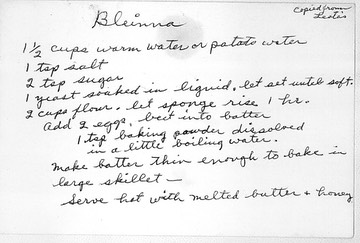 Bleinna
Copied from
Leota's
1 1/2 cups warm water or potato water
1 tsp salt
2 tsp sugar
1 yeast soaked in liquid, let set until soft.
2 cups flour. let sponge rise 1 hr.
Add 2 eggs, beet into batter
1 tsp baking powder dissolved
in a little boiling water.
Make batter thin enough to bake in
large skillet —
Serve hot with melted butter + honey